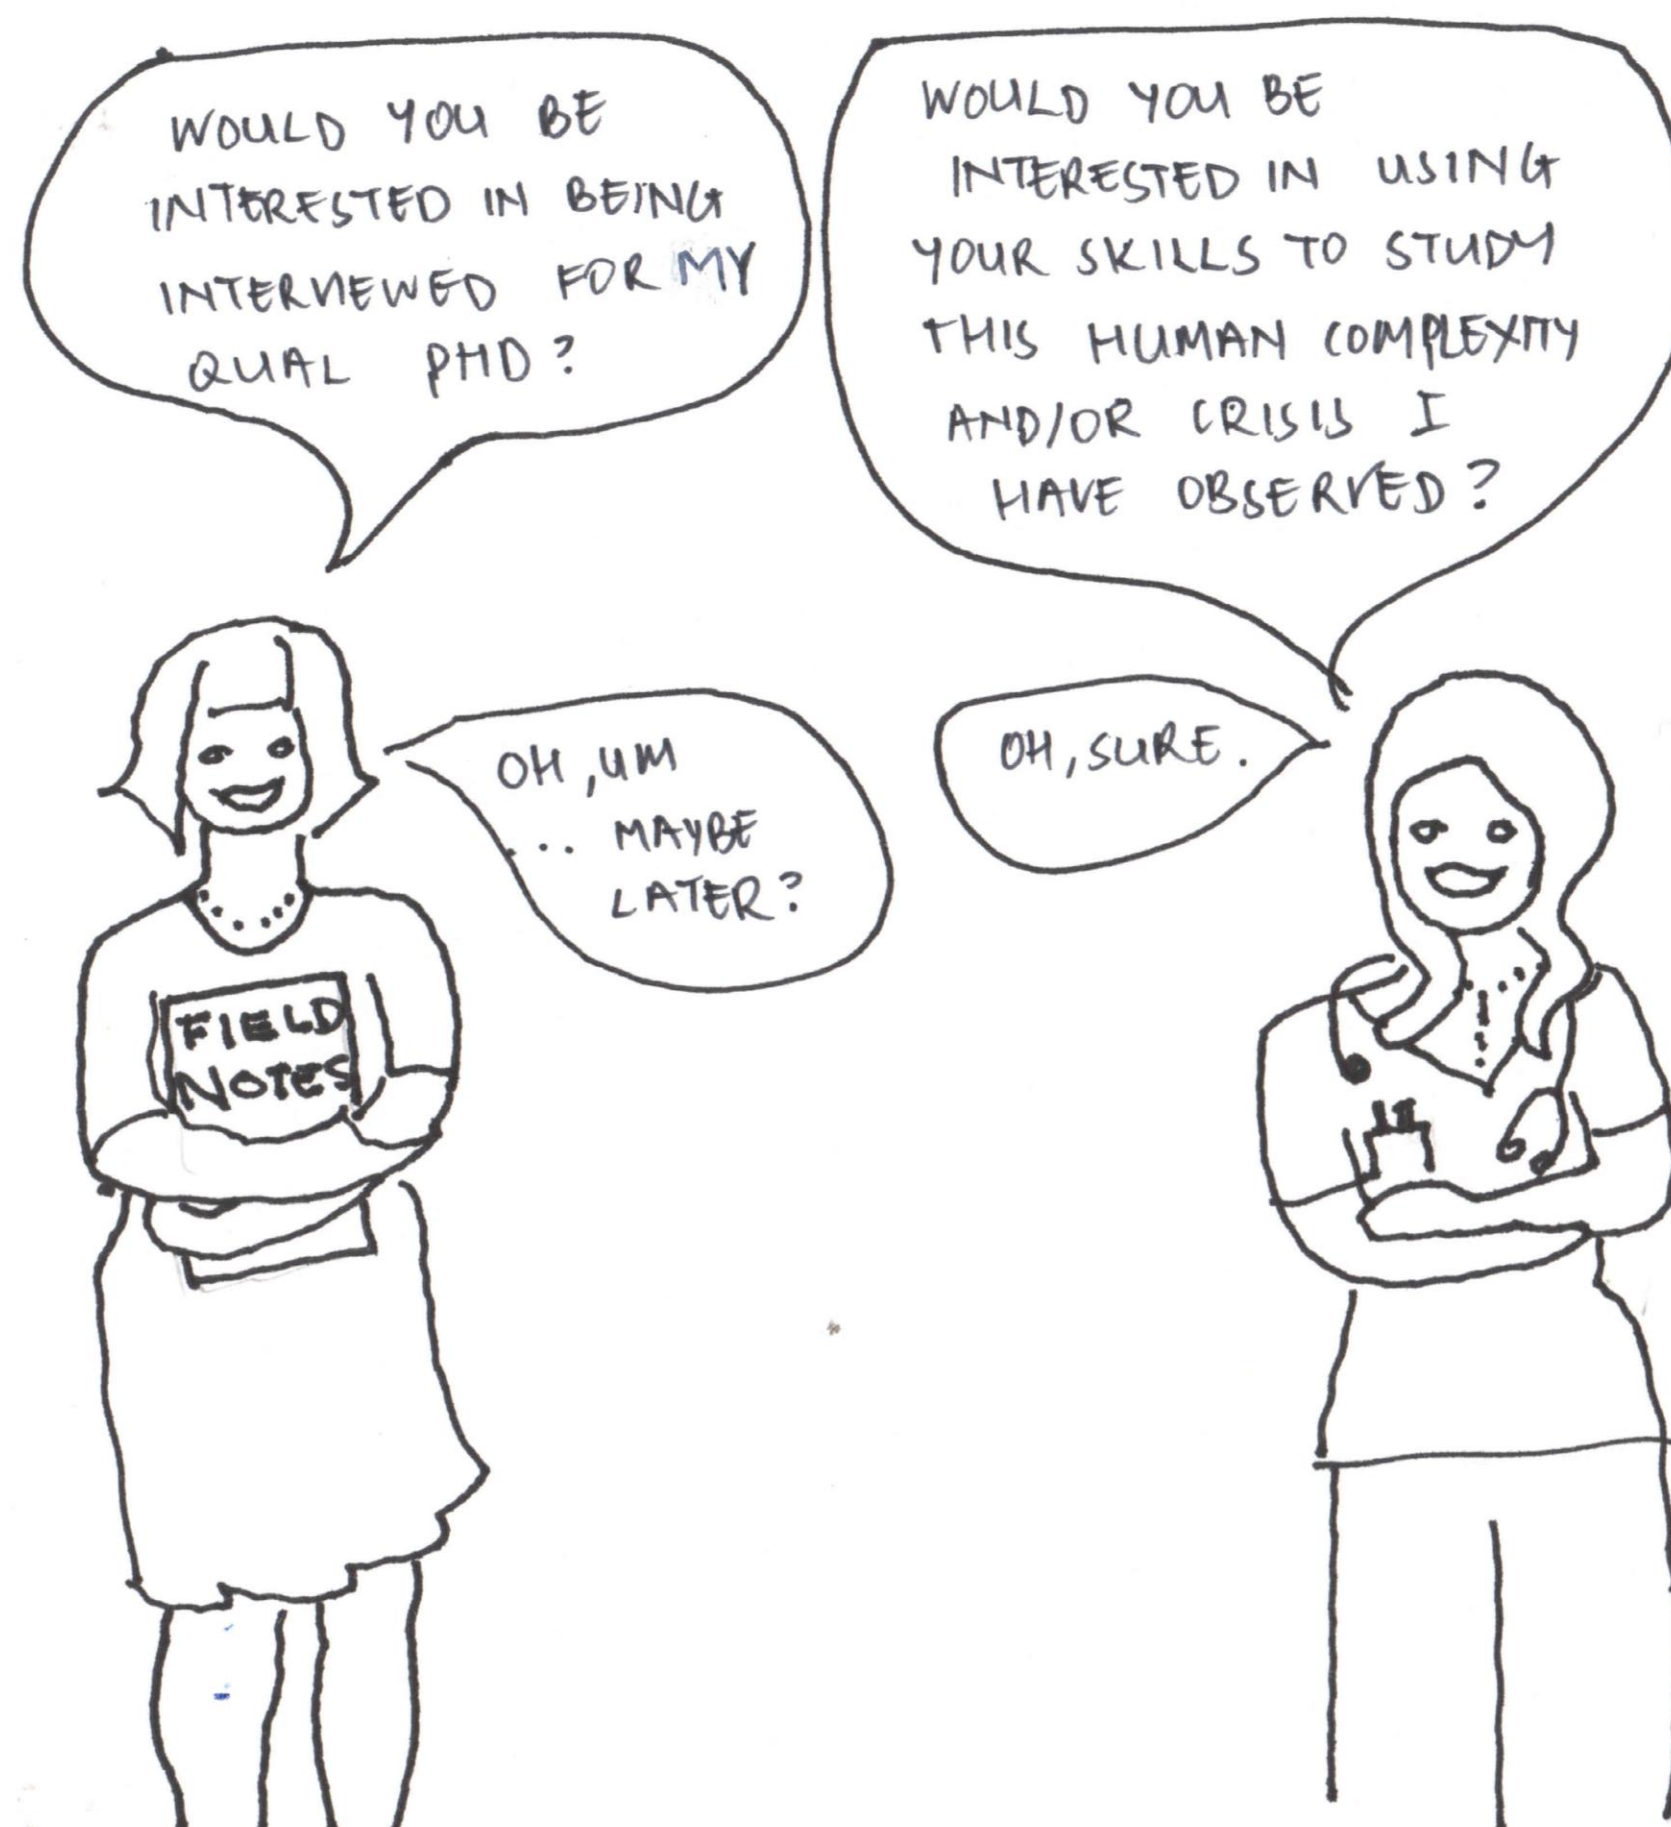 WOULD YOU BE
INTERESTED IN BEING
INTERVIEWED FOR MY
QUAL PHD?
WOULD YOU BE
INTERESTED IN USING
YOUR SKILLS TO STUDY
THIS HUMAN COMPLEXITY
AND/OR CRISIS I
HAVE OBSERVED?
OH, SURE.
OH, UM
... MAYBE
LATER?
FIELD
NOTES